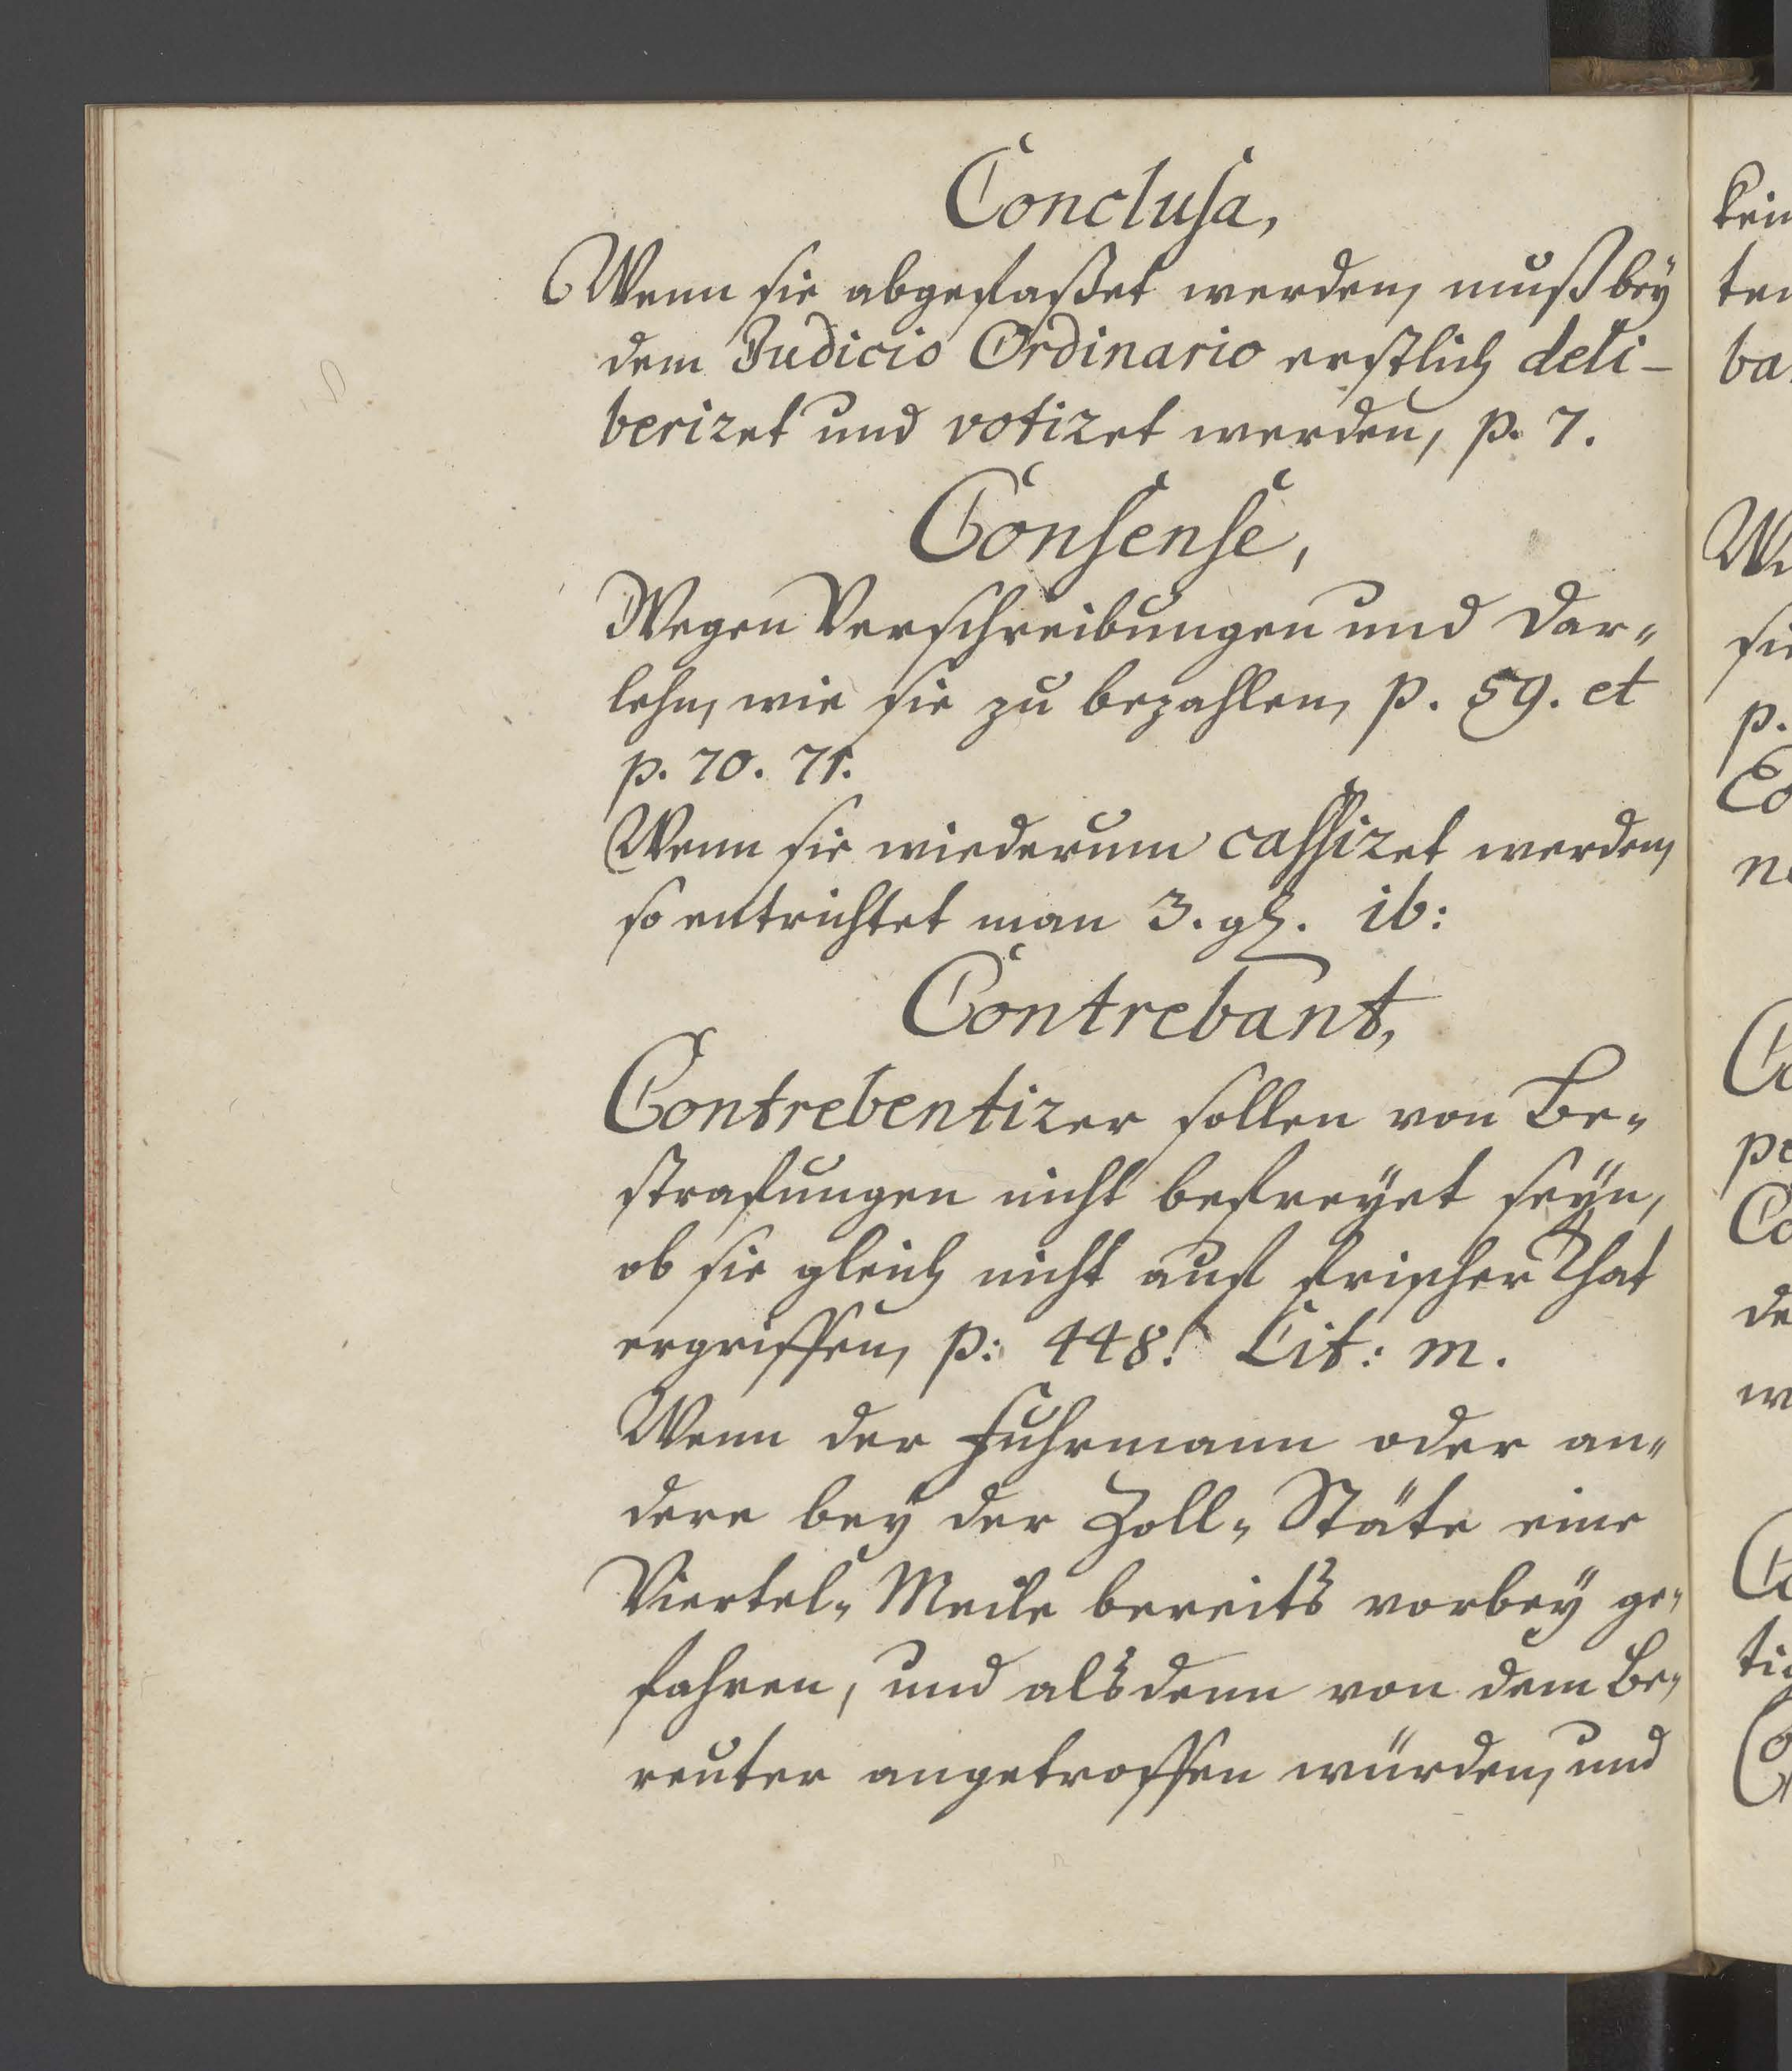 Conclusa,
Wenn sie abgefaßet werden, muß bey
dem Judicio Ordinario erstlich deli-
beriret und votiret werden, p. 7.
Consense,
Wegen Verschreibungen und Dar-
lehn, wie sie zu bezahlen, p. 59. et
p. 70. 71.
Wenn sie wiederum cassiret werden,
so entrichtet man 3. gl. ib:
Contrebant,
Contrebentirer sollen von Be-
strafungen nicht befreyet seyn,
ob sie gleich nicht auf frischer That
ergriffen, p: 448. Lit: m.
Wenn der Fuhrmann oder an-
dere bey der Zoll-Stäte eine
Viertel-Meile bereits vorbey ge-
fahren, und alsdenn von dem Be-
reuter angetroffen würden, und